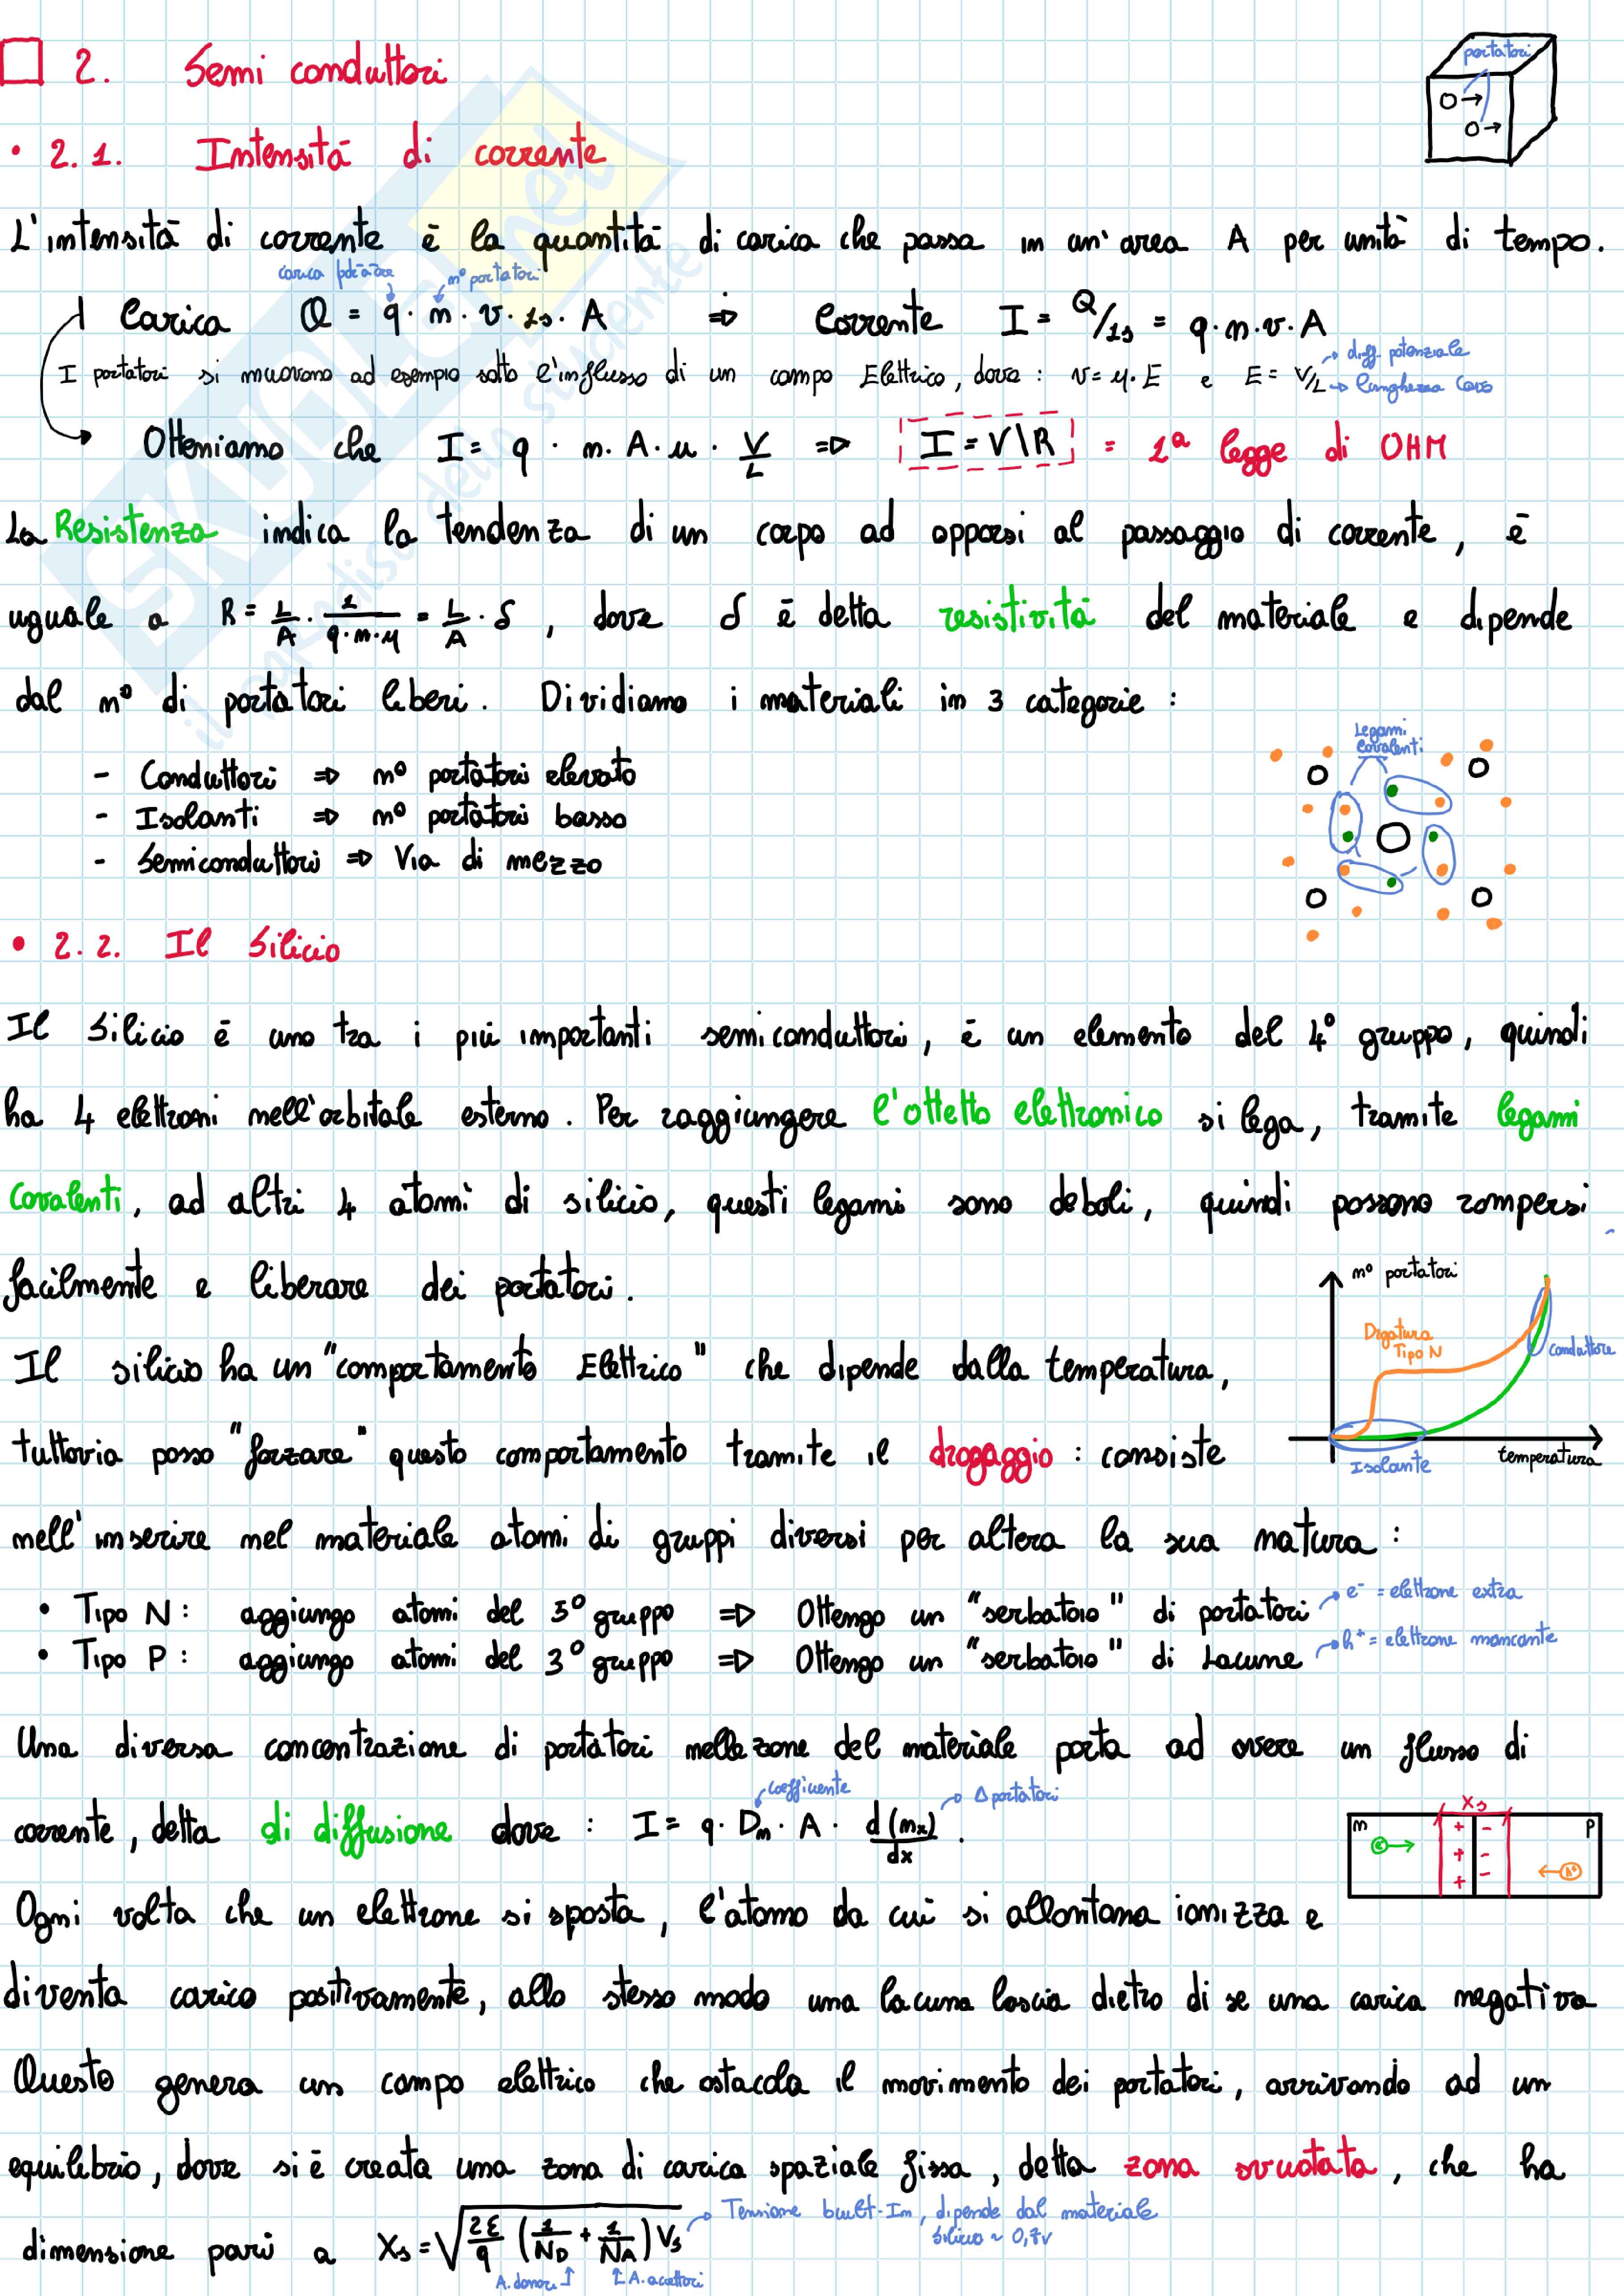 2. Semi conduttori
portatori
• 2.1. Intensità di corrente
L'intensità di corrente è la quantità di carica che passa in un'area A per unità di tempo.
carica portatore n° portatori
Carica Q = q · n · v · 1s · A ⇒ Corrente I = Q/1s = q·n·v·A
diff. potenziale
I portatori si muovono ad esempio sotto l'influsso di un campo Elettrico, dove: v = μ·E e E = V/L → lunghezza
Otteniamo che I = q · n · A · μ · V/L ⇒ I = V\R = 1ª legge di OHM
La Resistenza indica la tendenza di un corpo ad opporsi al passaggio di corrente, è
uguale a R = L/A · 1/q·n·μ = L/A · δ, dove δ è detta resistività del materiale e dipende
dal n° di portatori liberi. Dividiamo i materiali in 3 categorie:
Legami
Covalenti
- Conduttori ⇒ n° portatori elevato
- Isolanti ⇒ n° portatori basso
- Semiconduttori ⇒ Via di mezzo
• 2.2. Il Silicio
Il Silicio è uno tra i più importanti semiconduttori, è un elemento del 4° gruppo, quindi
ha 4 elettroni nell'orbitale esterno. Per raggiungere l'ottetto elettronico si lega, tramite legami
covalenti, ad altri 4 atomi di silicio, questi legami sono deboli, quindi possono rompersi
facilmente e liberare dei portatori.
n° portatori
Drgatura
Tipo N
conduttore
Isolante
temperatura
Il silicio ha un "comportamento Elettrico" che dipende dalla temperatura,
tuttavia posso "forzare" questo comportamento tramite il drogaggio: consiste
nell'inserire nel materiale atomi di gruppi diversi per altera la sua natura:
• Tipo N: aggiungo atomi del 5° gruppo ⇒ Ottengo un "serbatoio" di portatori → e⁻ = elettrone extra
• Tipo P: aggiungo atomi del 3° gruppo ⇒ Ottengo un "serbatoio" di Lacune → h⁺ = elettrone mancante
Una diversa concentrazione di portatori nelle zone del materiale porta ad avere un flusso di
coefficiente Δ portatori
corrente, detta di diffusione dove: I = q · Dn · A · d(nx)/dx.
Xs
n e + - p
+ - h⁺
+ -
Ogni volta che un elettrone si sposta, l'atomo da cui si allontana ionizza e
diventa carico positivamente, allo stesso modo una lacuna lascia dietro di se una carica negativa
Questo genera un campo elettrico che ostacola il movimento dei portatori, arrivando ad un
equilibrio, dove si è creata una zona di carica spaziale fissa, detta zona svuotata, che ha
dimensione pari a Xs = √(2ε/q (1/ND + 1/NA) Vs) → Tensione built-In, dipende dal materiale
silicio ~ 0,7v
A. donori A. accettori
SKUOLA.net
il paradiso dello studente